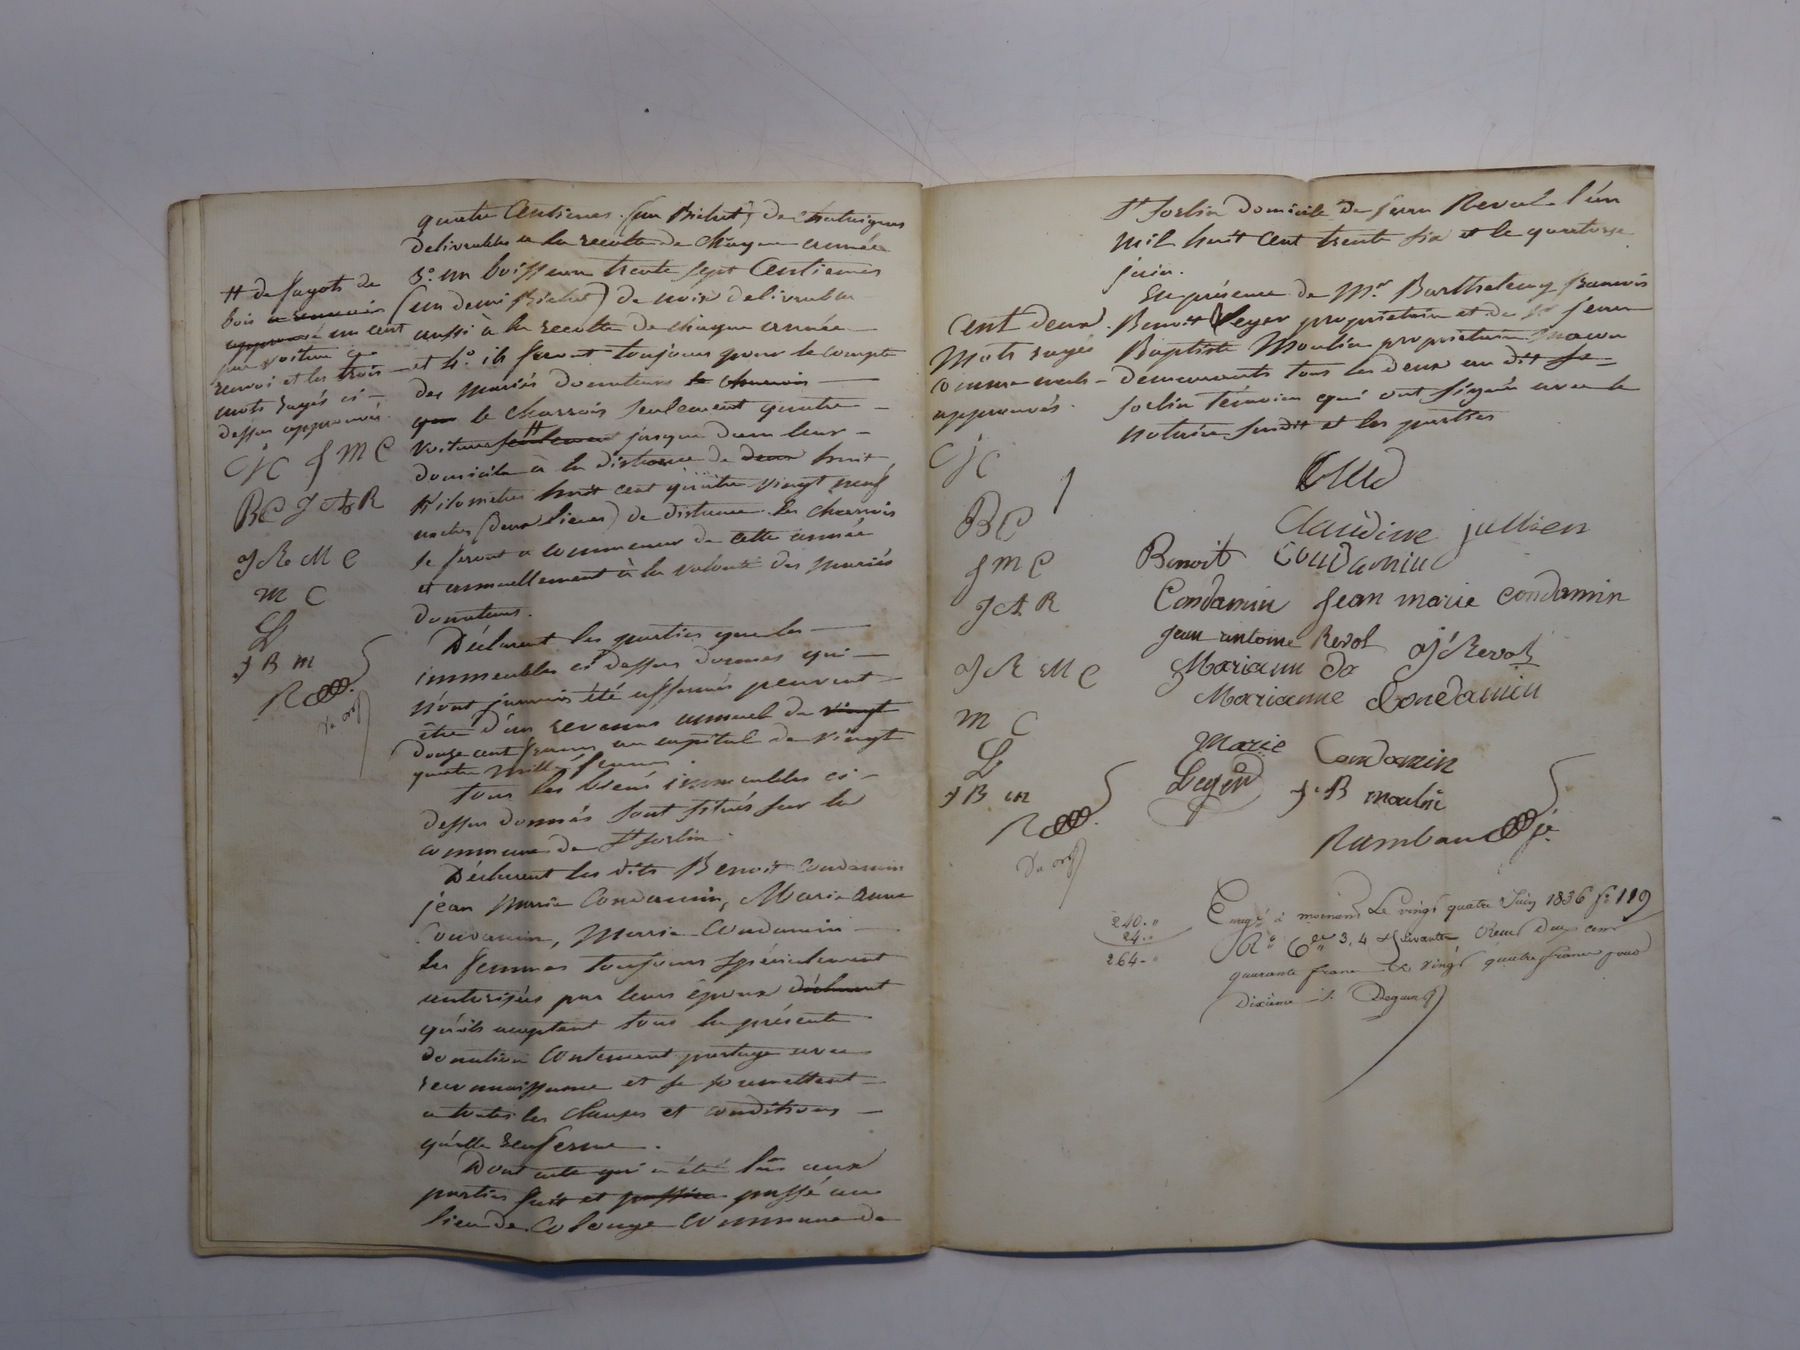 quatre Centiemes (un Bichet) de chataignes
delivrables a la recolte de chaque année
3° un boisseau trente sept Centiemes
(un demi Bichet) de noix delivrables
aussi à la recolte de chaque année
et 4° ils feront toujours pour le compte
des mariés donateurs le charrois
que le charrois seulement quatre
voitures seulement jusque dans leur
domicile à la distance de deux huit
Kilometres huit cent quatre vingt neuf
metres (deux lieues) de distance. les charrois
se feront a commencer de cette année
et annuellement à la volonté des mariés
donateurs.
Déclarent les parties que les
immeubles ci dessus donnés qui
n'ont jamais été affermés peuvent
être d'un revenus annuel de vingt
douze cent francs au capital de vingt
quatre mille francs.
tous les biens immeubles ci-
dessus donnés sont situés sur la
commune de St Sorlin.
Déclarent les dits Benoit Condamin
jean Marie Condamin, Marie anne
Condamin, Marie Condamin
les femmes toujours spécialement
autorisées par leurs époux déclarent
qu'ils acceptent tous la présente
donation contenant partage avec
reconnaissance et se soumettent
a toutes les clauses et conditions
qu'elle renferme.
Dont acte qui a été lu aux
parties fait et passé au
lieu de Colonge commune de
# de fagots de
bois
un cent
par voiture
renvoi et les trois
mots rayés ci-
dessus approuvés.
CJC J M C
BC J A R
J R M C
M C
L
J B M
R
St Sorlin domicile de jean Revol l'an
mil huit cent trente six et le quatorze
juin.
En présence de Mr Barthelemy francois
Benoit Leger propriétaire et de Sr Jean
Baptiste Moulin propriétaire macon
demeurants tous les deux au dit St
Sorlin témoins qui ont signé avec le
notaire susdit et les parties
Cent deux
mots rayés
comme nuls
approuvés.
CJC
BC
J M C
J A R
J R M C
M C
L
J B M
R
Claudine jullien
Benoit Condamin
Condamin Jean marie condamin
jean antoine Revol J Revol
Mariann Co
Marianne Condamin
Marie Condamin
Leger J. B moulin
Rambaud
240. "
24. "
264. "
Enregé à mornant Le vingt quatre Juin 1836 f° 119
Ro Ces 3, 4 & suivantes Reçu deux cent
quarante francs & vingt quatre francs pour
dixième